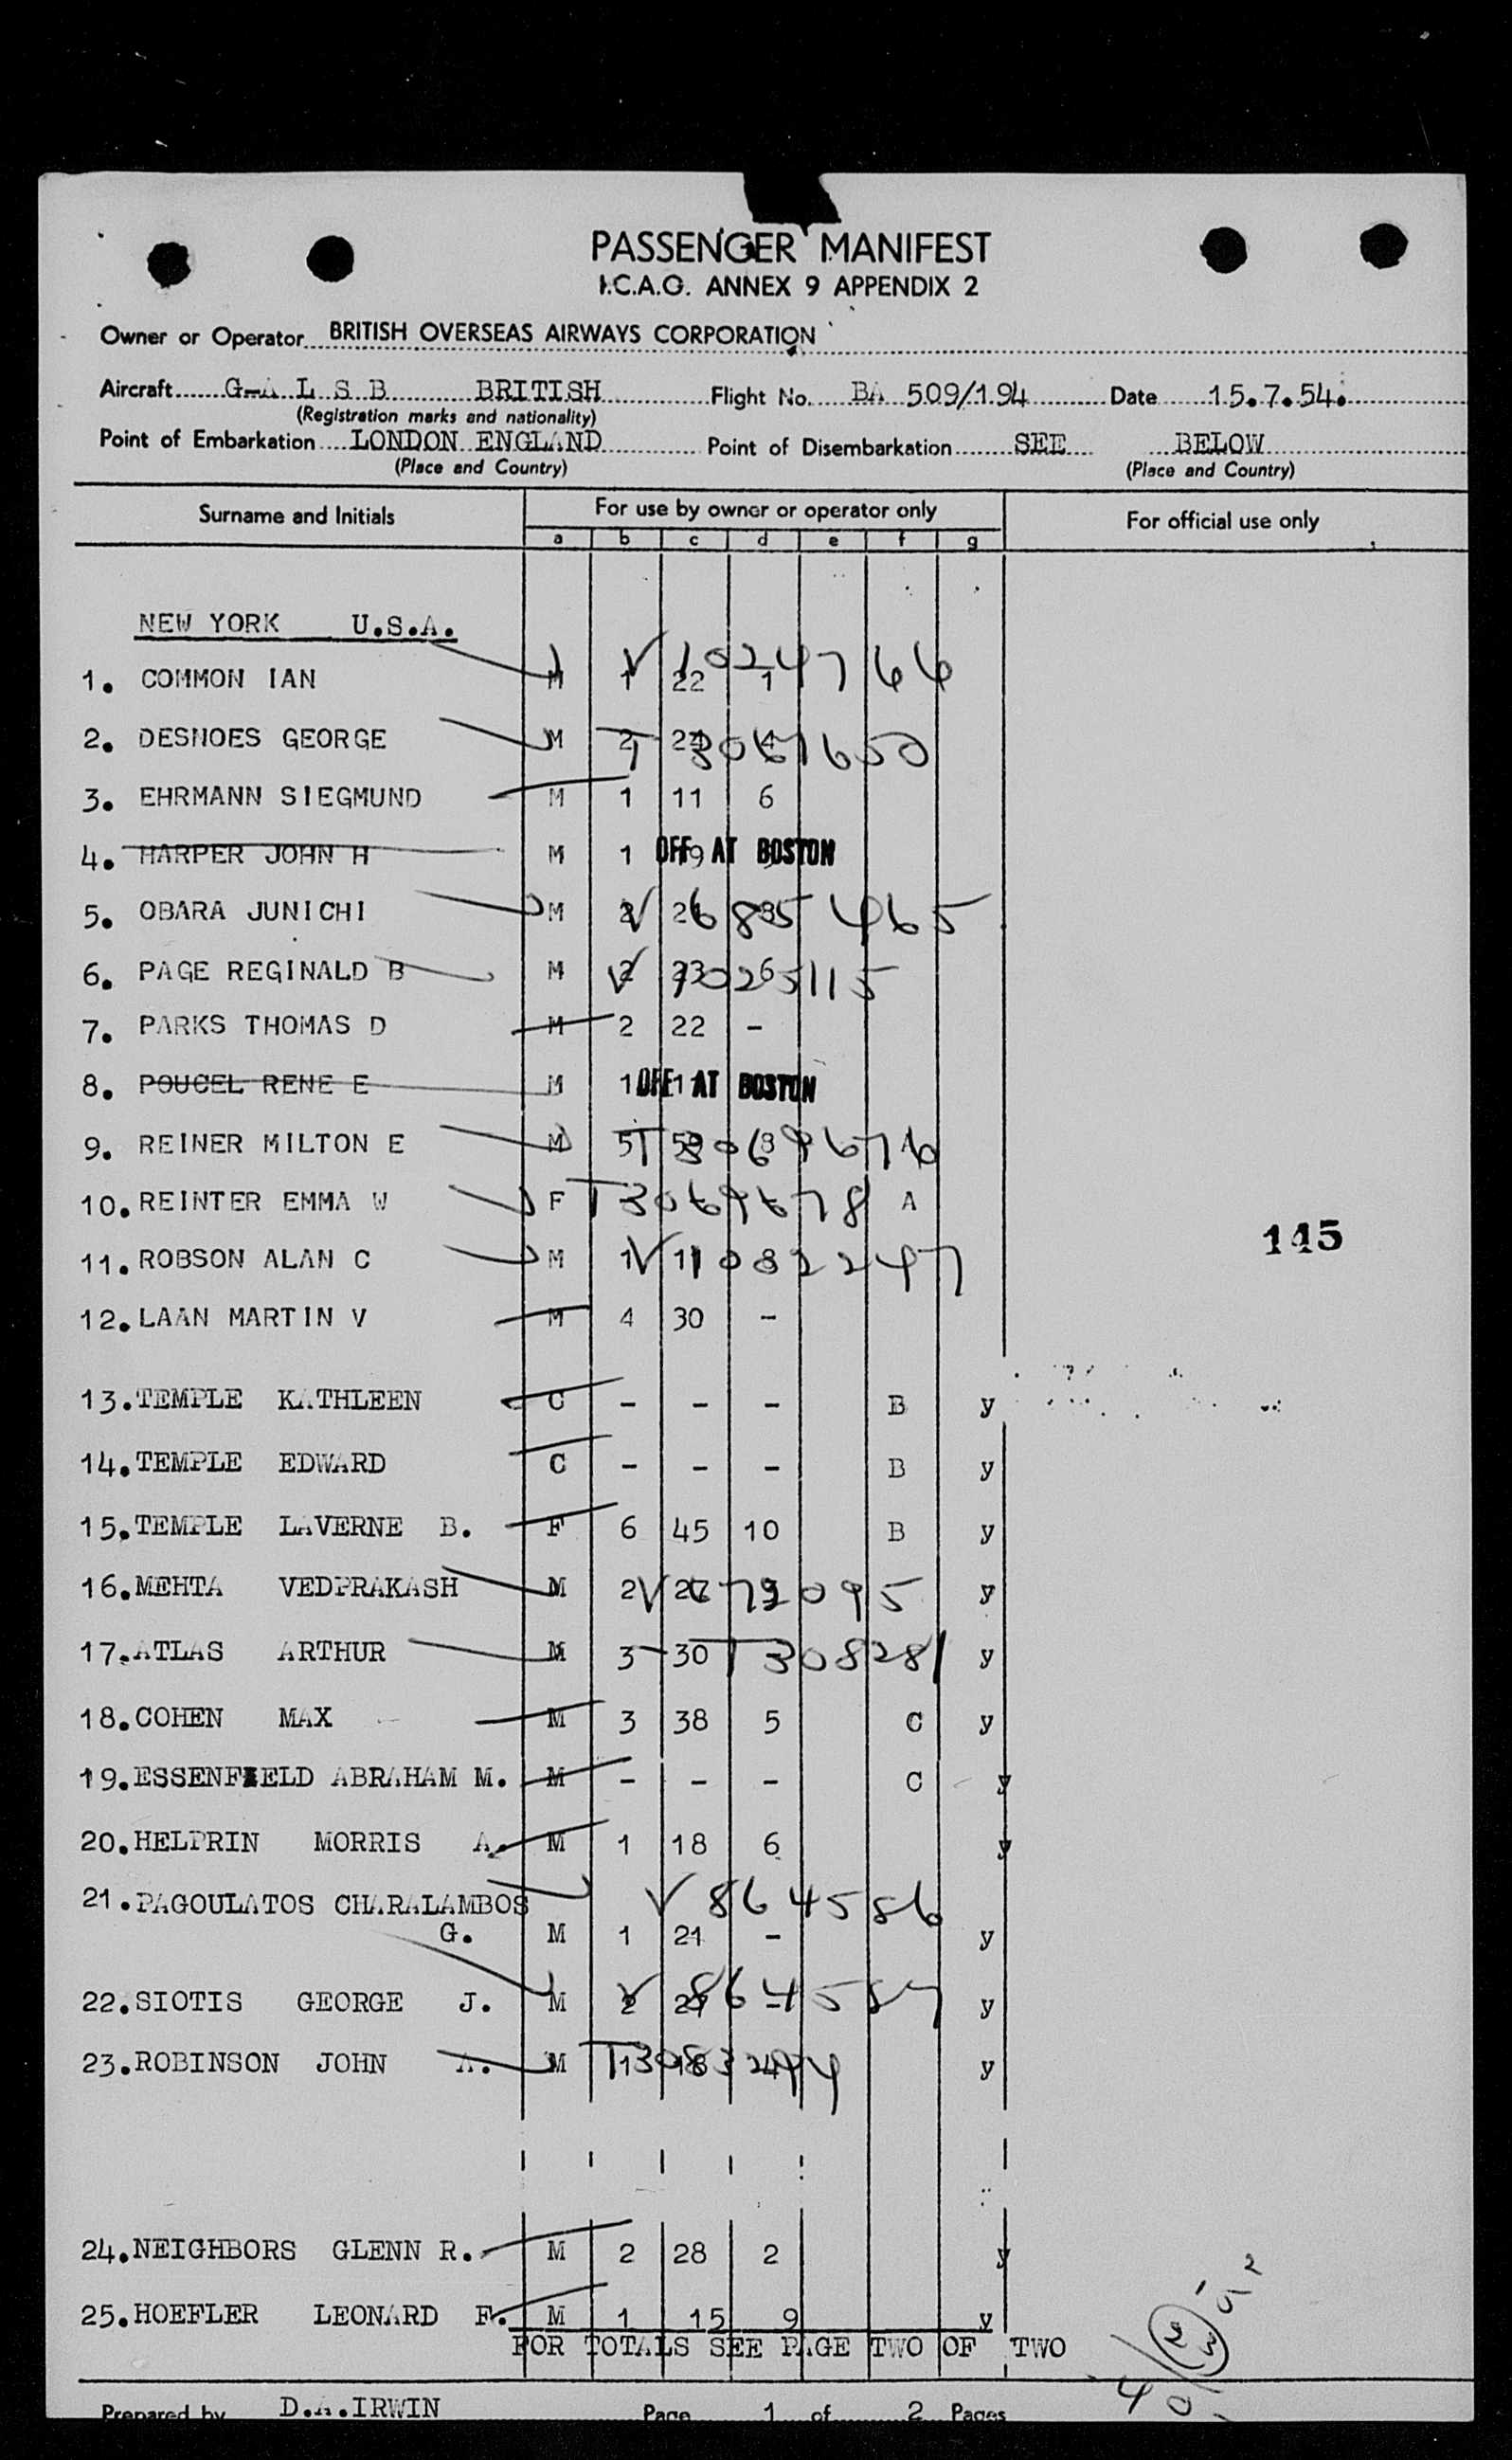 PASSENGER MANIFEST
I.C.A.O. ANNEX 9 APPENDIX 2
Owner or Operator BRITISH OVERSEAS AIRWAYS CORPORATION
Aircraft G-A L S B BRITISH Flight No. BA 509/194 Date 15.7.54.
(Registration marks and nationality)
Point of Embarkation LONDON ENGLAND Point of Disembarkation SEE BELOW
(Place and Country) (Place and Country)
Surname and Initials For use by owner or operator only For official use only
a b c d e f g
NEW YORK U.S.A.
1. COMMON IAN M 1 22 1 V 10247166
2. DESNOES GEORGE M 2 24 4
3. EHRMANN SIEGMUND M 1 11 6
4. HARPER JOHN H M 1 OFF AT BOSTON
5. OBARA JUNICHI M 2 V 6835465
6. PAGE REGINALD B M 2 23 6 V 7025115
7. PARKS THOMAS D M 2 22 -
8. POUCEL RENE E M 1 OFF AT BOSTON
9. REINER MILTON E M 5 T3069676 A
10. REINTER EMMA W F T3069678 A
145
11. ROBSON ALAN C M 1 V 11082247
12. LAAN MARTIN V M 4 30 -
13. TEMPLE KATHLEEN C - - - B y
14. TEMPLE EDWARD C - - - B y
15. TEMPLE LAVERNE B. F 6 45 10 B y
16. MEHTA VEDPRAKASH M 2 V y
17. ATLAS ARTHUR M 3 30 T308281 y
18. COHEN MAX M 3 38 5 C y
19. ESSENFIELD ABRAHAM M. M - - - C y
20. HELPRIN MORRIS A. M 1 18 6 y
21. PAGOULATOS CHARALAMBOS V 864586
G. M 1 21 - y
22. SIOTIS GEORGE J. M 2 V 864587 y
23. ROBINSON JOHN A. M 1 18 y
24. NEIGHBORS GLENN R. M 2 28 2 y
25. HOEFLER LEONARD F. M 1 15 9 y
FOR TOTALS SEE PAGE TWO OF TWO
Prepared by D.A.IRWIN Page 1 of 2 Pages